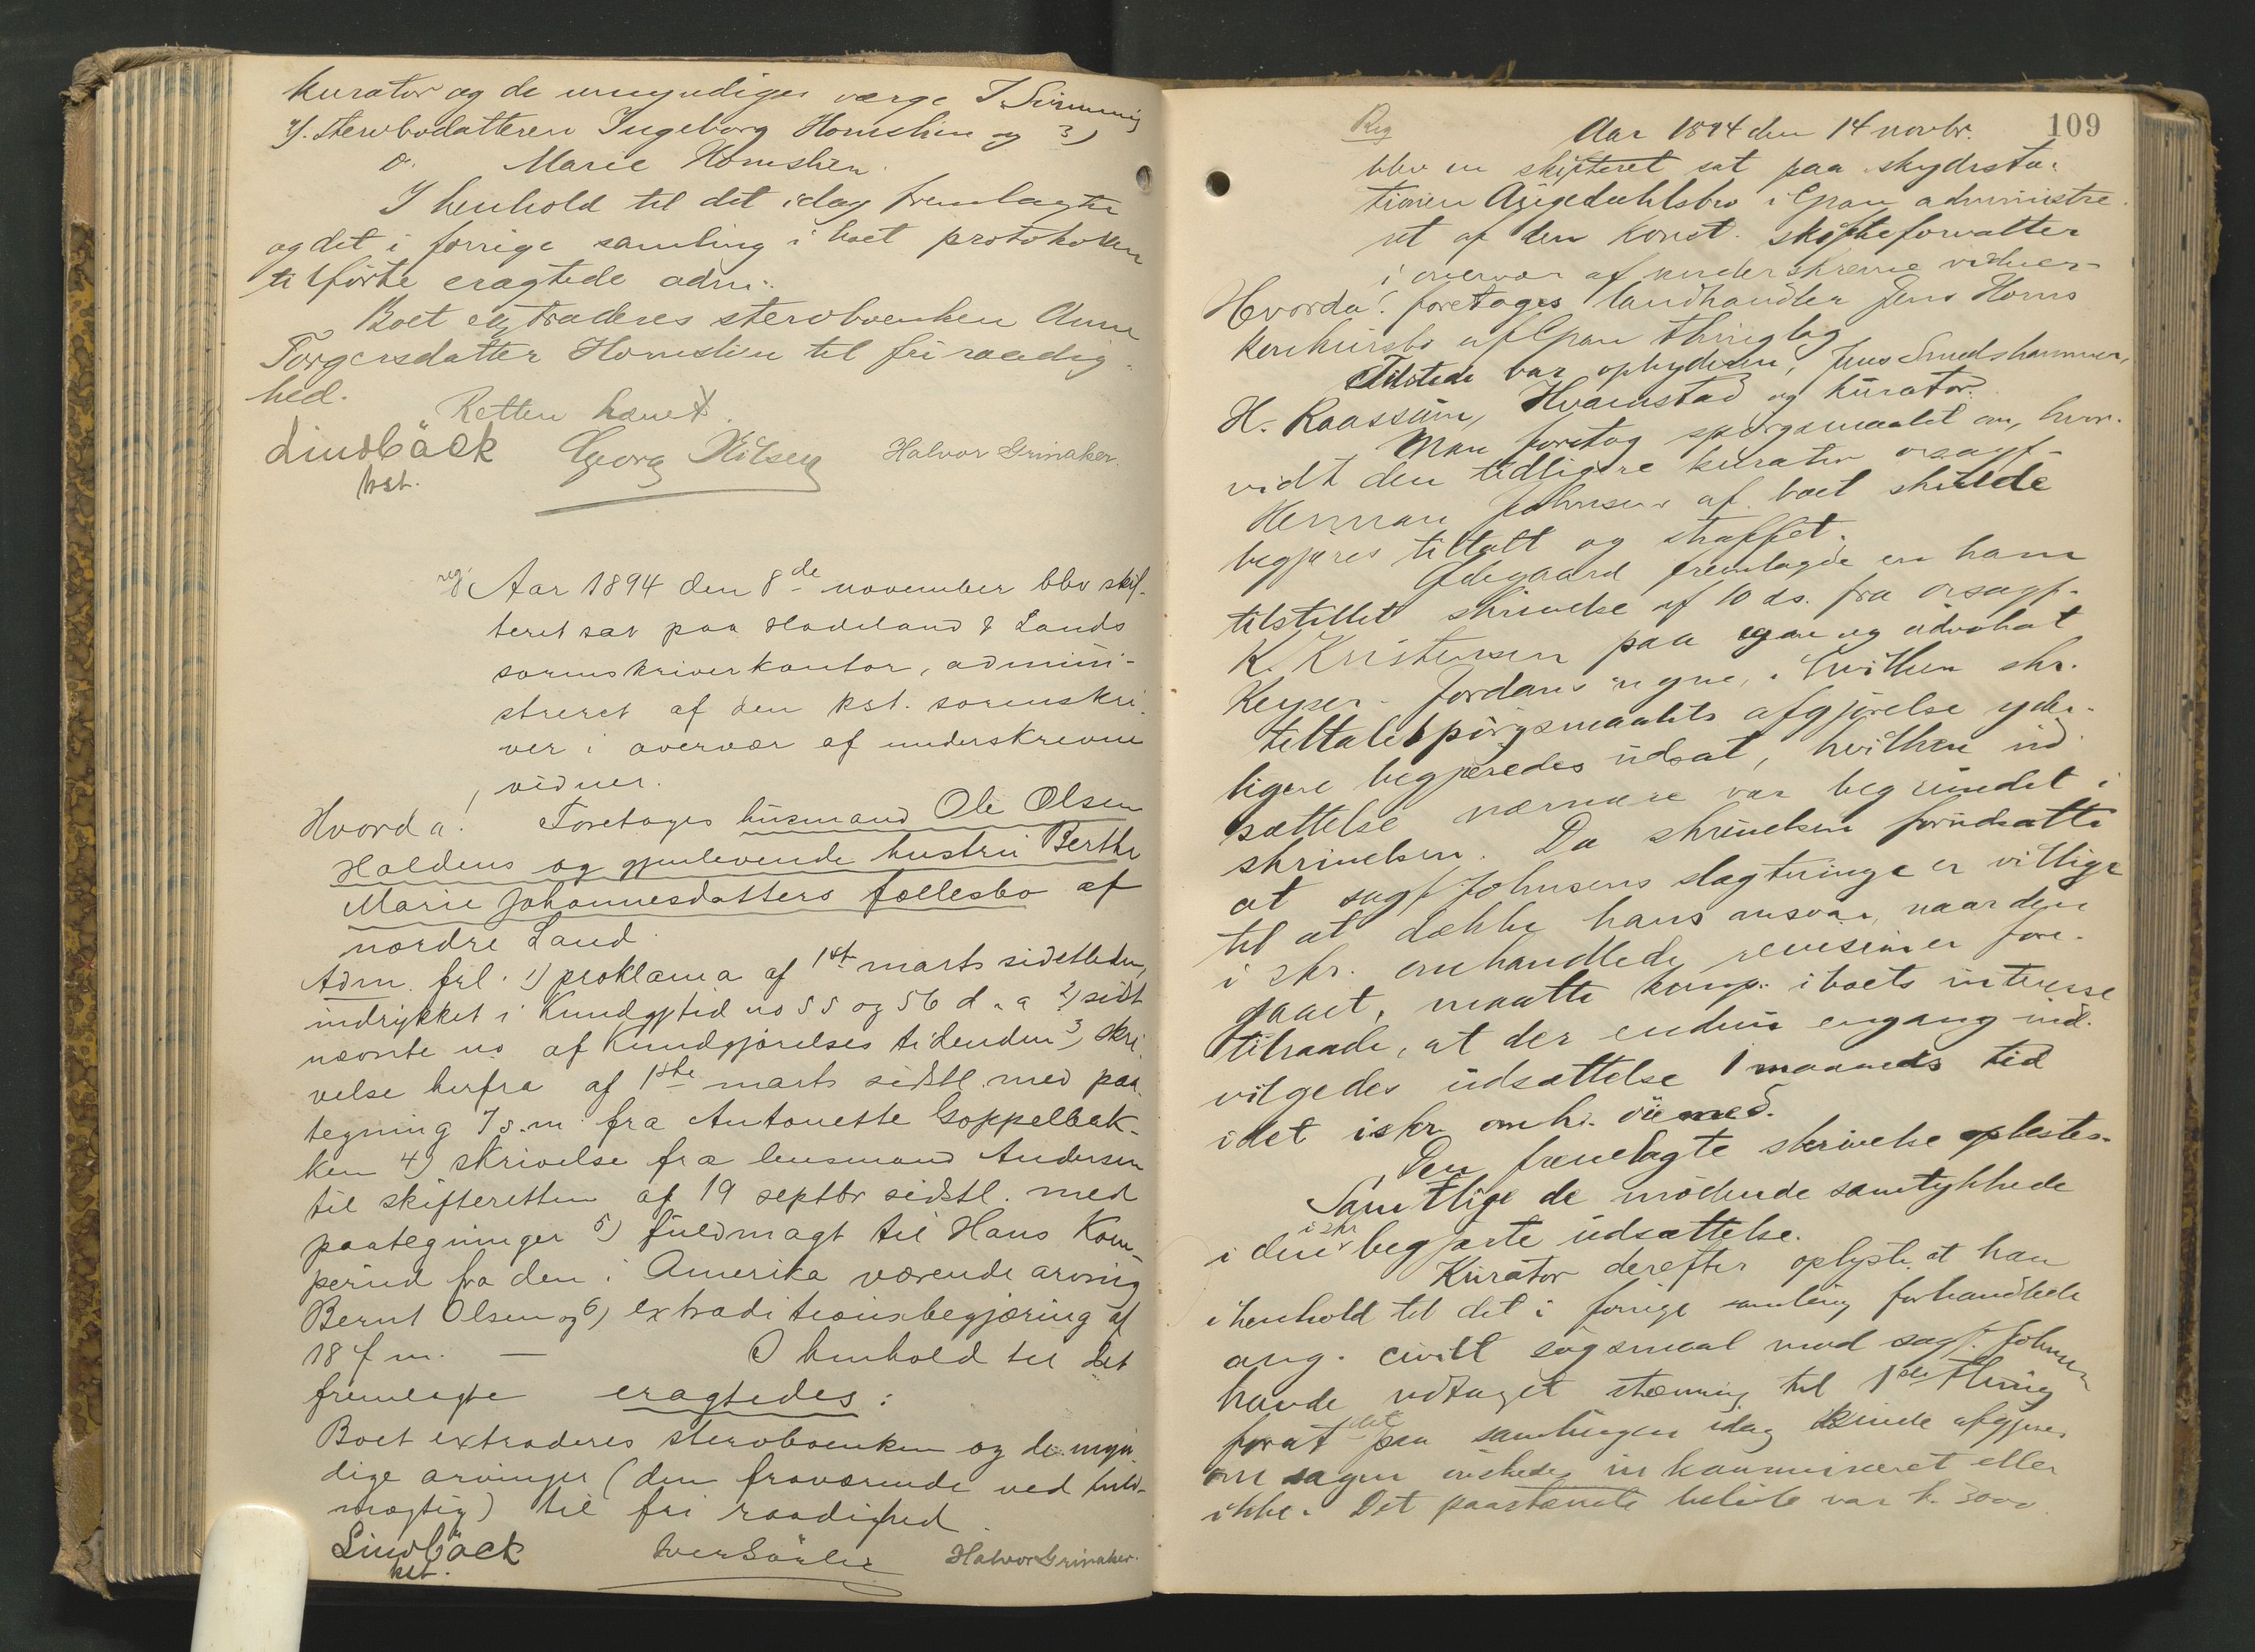 kurator og de umyndiges værge
2). Stervbodatteren Ingeborg Homslien og 3)
D. Marie Homslien.
I henhold til det idag fremlagte
og det i forrige samling i boet protokollen
tilførte eragtede adm.:
Boet extraderes stervboenken Anne
Torgersdatter Homslien til fri raadig-
hed.
Retten hævet.
Lindbäck Georg Nilsen Halvor Grinaker.
kst.
reg. Aar 1894 den 8de november blev skif-
teret sat paa Hadeland & Lands
sorenskriverkontor, admini-
streret af den kst. sorenskri-
ver i overvær af underskrevne
vidner.
Hvorda! Foretages husmand Ole Olsen
Haldens og gjenlevende hustru Berthe
Marie Johannesdatters fællesbo af
nordre Land.
Adm. frl. 1) proklama af 1ste marts sidstleden,
indrykket i Kundgjtid no 55 og 56 d. a 2) sidst
nævnte no af Kundgjørelses tidenden 3) skri-
velse herfra af 1ste marts sidstl. med paa-
tegning 7 s.m. fra Antonette Goppelbak-
ken 4) skrivelse fra lensmand Andersen
til skifteretten af 19 septbr sidstl. med
paategninger 5) fuldmagt til Hans Kom-
perud fra den i Amerika værende arving
Bernt Olsen og 6) extraditionsbegjæring af
18 f m. — I henhold til det
fremlagte eragtedes:
Boet extraderes stervboenken og de myn-
dige arvinger (den fraværende ved fuld-
mægtig) til fri raadighed.
Lindbäck Halvor Grinaker.
kst.
109
Reg Aar 1894 den 14 novbr.
blev en skifteret sat paa skydssta-
tionen i Gran administre-
ret af den konst. skifteforvalter
i overvær af underskrevne vidner
Hvorda! foretages landhandler Jens Horns
konkursbo af Gran thinglag
Tilstede var opbyderen, Jens Smedshammer,
H. Raassum, Hvamstad og kurator.
Man foretog spørgsmaalet om, hvor-
vidt den tidligere kurator orsagf.
Herman Johnsen af boet skulde
begjæres tiltalt og straffet.
Ødegaard fremlagde en ham
tilstillet skrivelse af 10 ds. fra orsagf.
K. Kristensen paa egne og advokat
Keyser-Jordans vegne, i hvilken skr.
tiltalespørgsmaalets afgjørelse yder-
ligere begjæredes udsat, hvilken ud-
sættelse nærmere var begrundet i
skrivelsen. Da skrivelsen forudsatte
at sagf Johnsens slægtninge er villige
til at dække hans ansvar, naar den
i skr. omhandlede revision er fore-
gaaet, maatte komp. i boets interesse
tilraade, at der endnu engang ind-
vilgedes udsættelse 1 maaneds tid
i det i skr. omh. øiemed.
Den fremlagte skrivelse oplæstes.
Samtlige de mødende samtykkede
i den i skr begjærte udsættelse.
Kurator derefter oplyste, at han
i henhold til det i forrige samling forhandlede
ang. civilt søgsmaal mod sagf. Johnsen
havde udtaget stævning til 1ste thing
forat det paa samlingen idag kunde afgjøres
om sagen ønskedes inkammineret eller
ikke. Det paastævnte beløb var k. 3000